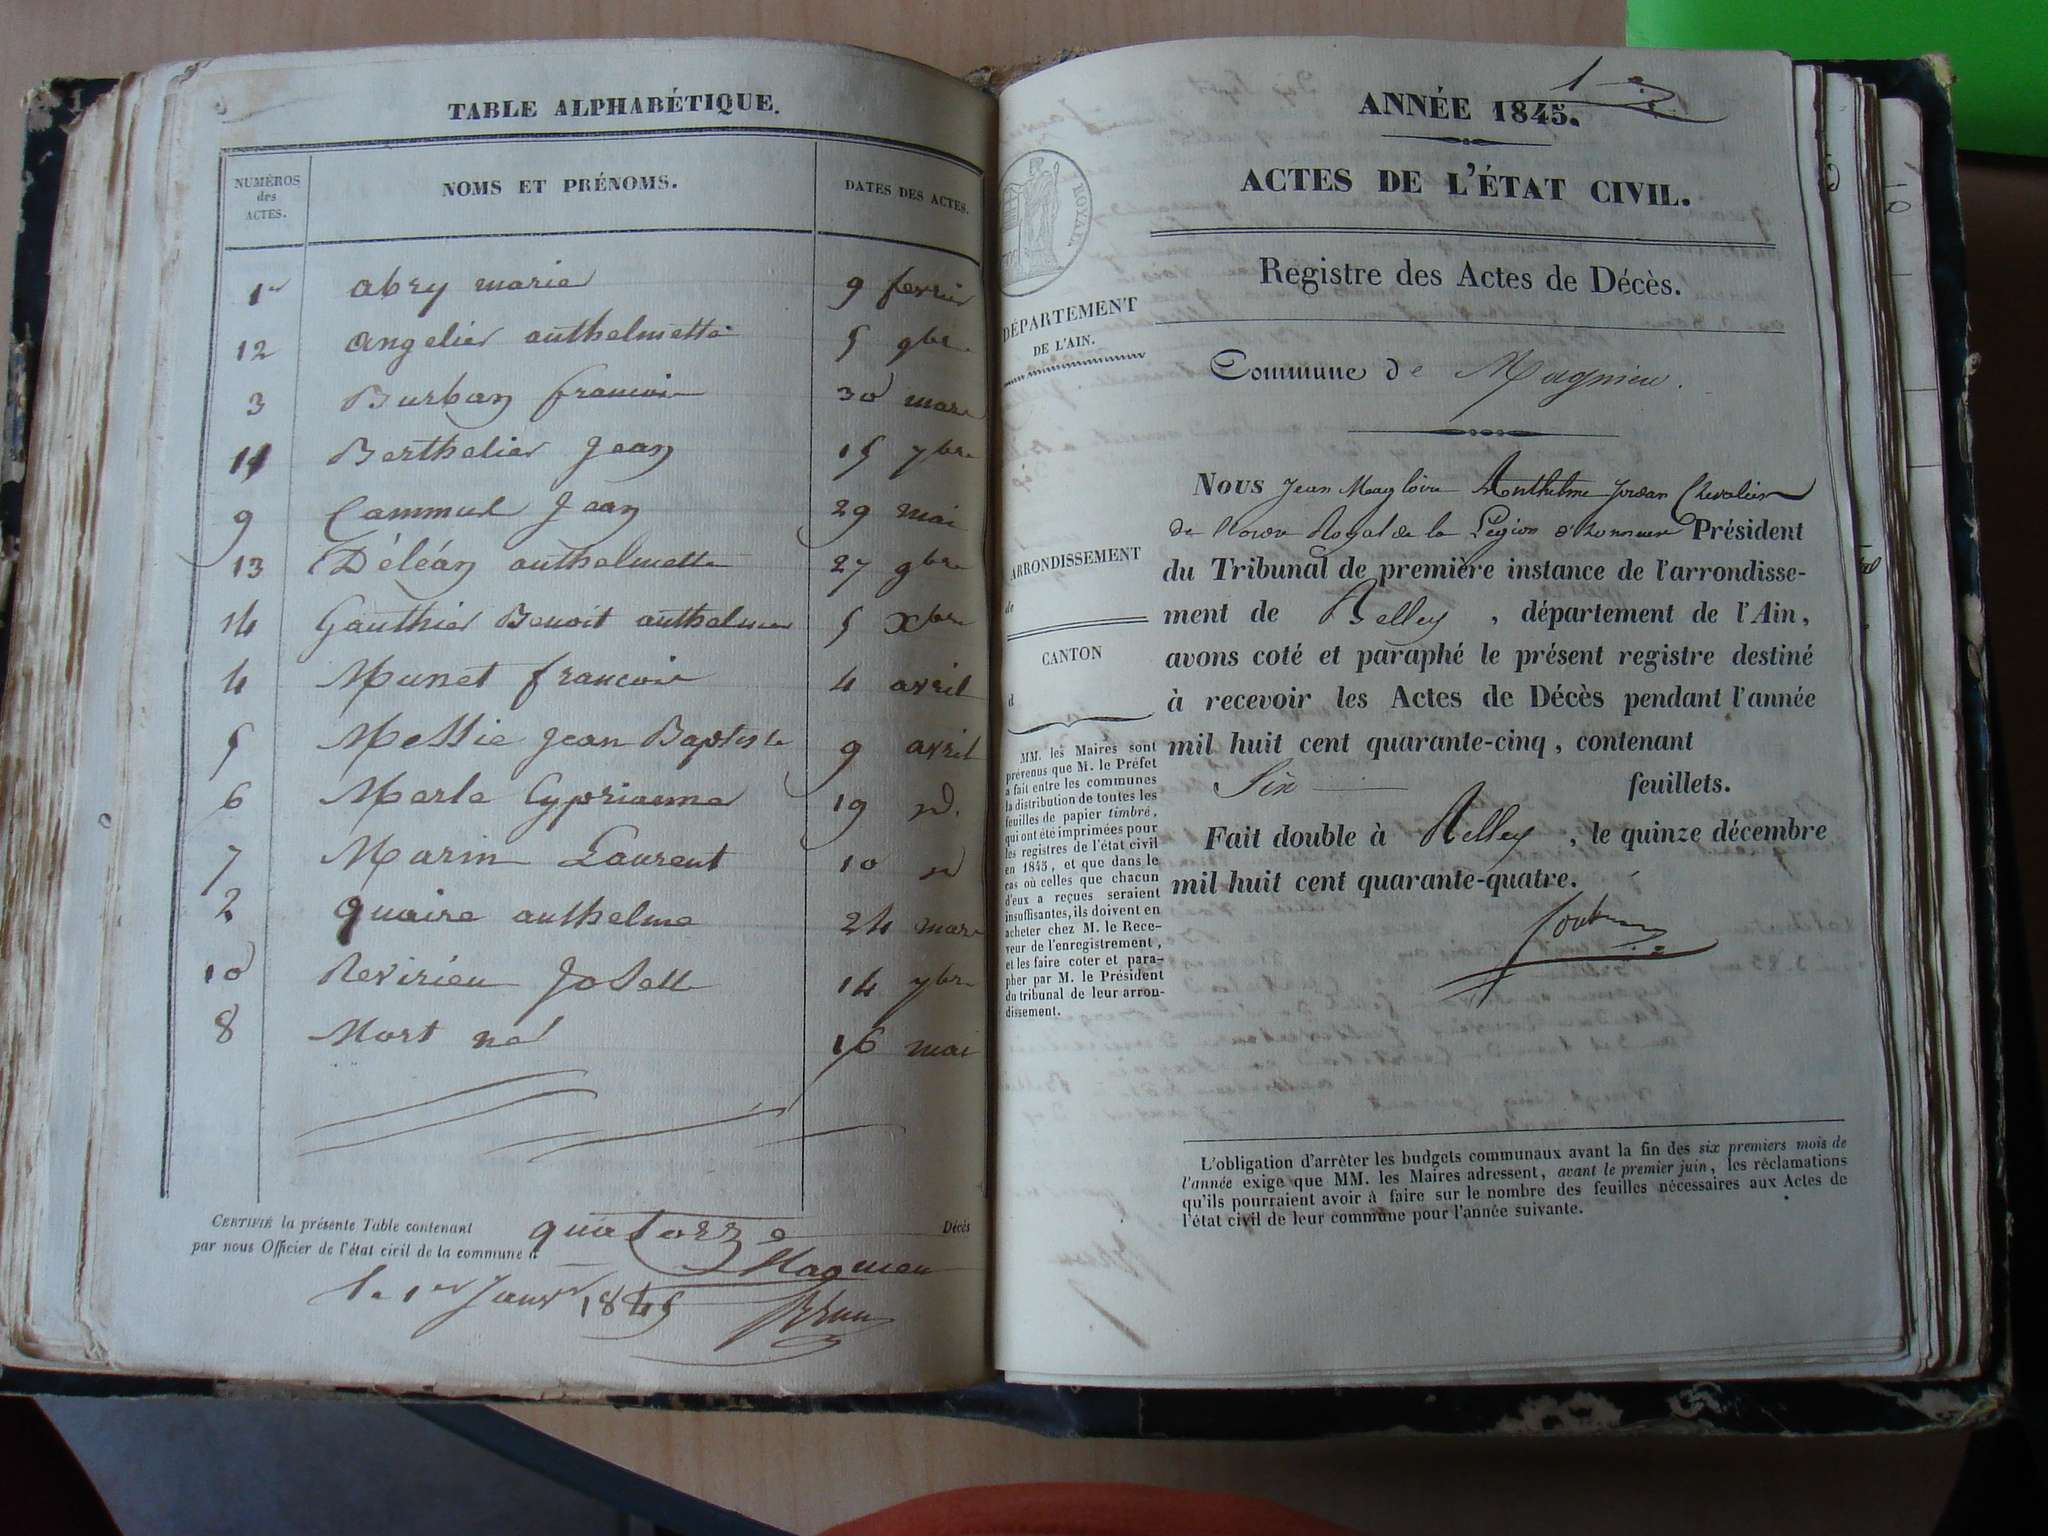 TABLE ALPHABÉTIQUE.
NUMÉROS des ACTES.
NOMS ET PRÉNOMS.
DATES DES ACTES.
1er abry marie 9 fevrier
12 angelier anthelmette 5 9bre
3 Burban francois 30 mars
11 Berthelier Jean 15 7bre
9 Cammul Jean 29 mai
13 Déléan anthelmette 27 9bre
14 Gauthier Benoit anthelme 5 Xbre
4 Munet francois 4 avril
5 Messie Jean Baptiste 9 avril
6 Merle Cyprienne 19 id.
7 Marin Laurent 10 id
2 quaire anthelme 24 mars
10 Revirieu Josette 14 7bre
8 Mort né 16 mai
CERTIFIÉ la présente Table contenant quatorze Décès
par nous Officier de l'état civil de la commune d Magnieu
le 1er Janvr 1845 Brun
1
ANNÉE 1845.
ACTES DE L'ÉTAT CIVIL.
Registre des Actes de Décès.
ROYAL
DÉPARTEMENT
DE L'AIN.
Commune de Magnieu.
ARRONDISSEMENT
de
CANTON
d
MM. les Maires sont
prévenus que M. le Préfet
a fait entre les communes
la distribution de toutes les
feuilles de papier timbré,
qui ont été imprimées pour
les registres de l'état civil
en 1845, et que dans le
cas où celles que chacun
d'eux a reçues seraient
insuffisantes, ils doivent en
acheter chez M. le Rece-
veur de l'enregistrement,
et les faire coter et para-
pher par M. le Président
du tribunal de leur arron-
dissement.
Nous Jean Magloire Anthelme Jordan Chevalier
de l'ordre Royal de la Légion d'honneur Président
du Tribunal de première instance de l'arrondisse-
ment de Belley, département de l'Ain,
avons coté et paraphé le présent registre destiné
à recevoir les Actes de Décès pendant l'année
mil huit cent quarante-cinq, contenant
Six feuillets.
Fait double à Belley, le quinze décembre
mil huit cent quarante-quatre.
L'obligation d'arrêter les budgets communaux avant la fin des six premiers mois de
l'année exige que MM. les Maires adressent, avant le premier juin, les réclamations
qu'ils pourraient avoir à faire sur le nombre des feuilles nécessaires aux Actes de
l'état civil de leur commune pour l'année suivante.